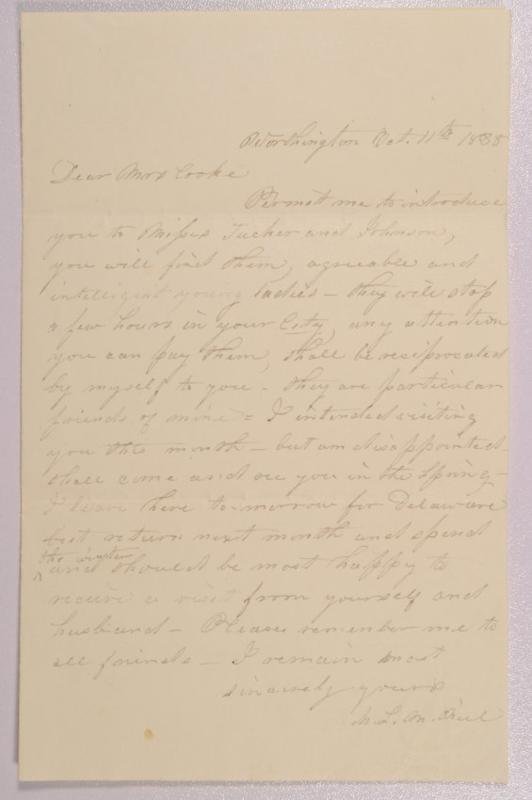 Worthington Oct. 11th 1838
Dear Mrs Cooke
Permit me to introduce
you to Misses Tucker and Johnson,
you will find them, agreeable and
intelligent young Ladies - they will stop
a few hours in your City, any attention
you can pay them, shall be reciprocated
by myself to you - they are particular
friends of mine - I intended visiting
you this month - but am disappointed
shall come and see you in the Spring -
I leave here to-morrow for Delaware
but return next month and spend
the winter
and should be most happy to
receive a visit from yourself and
husband - Please remember me to
all friends - I remain most
sincerely yours
M. L. M.